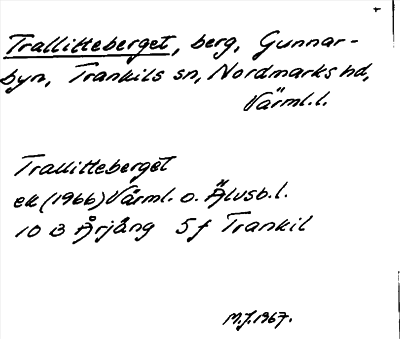 Trallitteberget, berg, Gunnar-
byn, Trankils sn, Nordmarks hd,
Värml.l.
Trallitteberget
ek (1966) Värml. o. Älvsb.l.
10 B Årjäng 5 f Trankil
M.J. 1967.